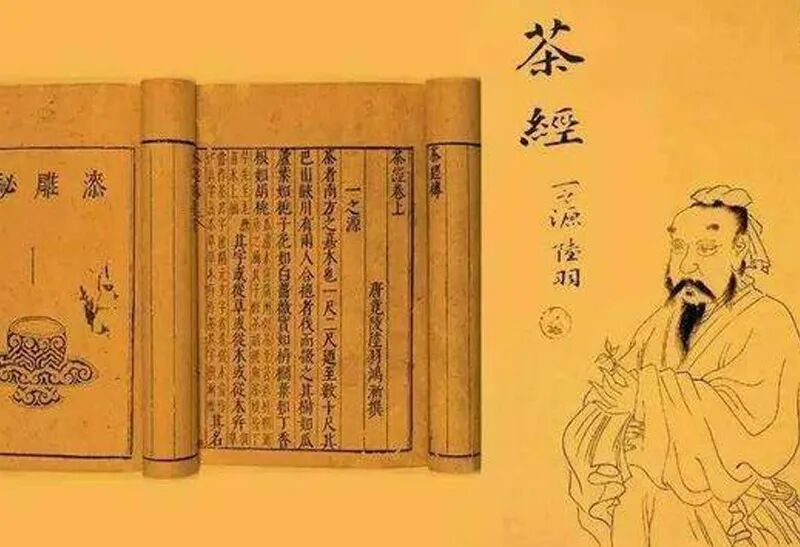 茶經
一之源 陸羽
茶經卷上
唐竟陵陸羽鴻漸撰
一之源
茶者南方之嘉木也一尺二尺廼至數十尺其
巴山峽川有兩人合抱者伐而掇之其樹如瓜
蘆葉如梔子花如白薔薇實如栟櫚葉如丁香
根如胡桃
其字或從草或從木或從木并
其名
漆雕秘